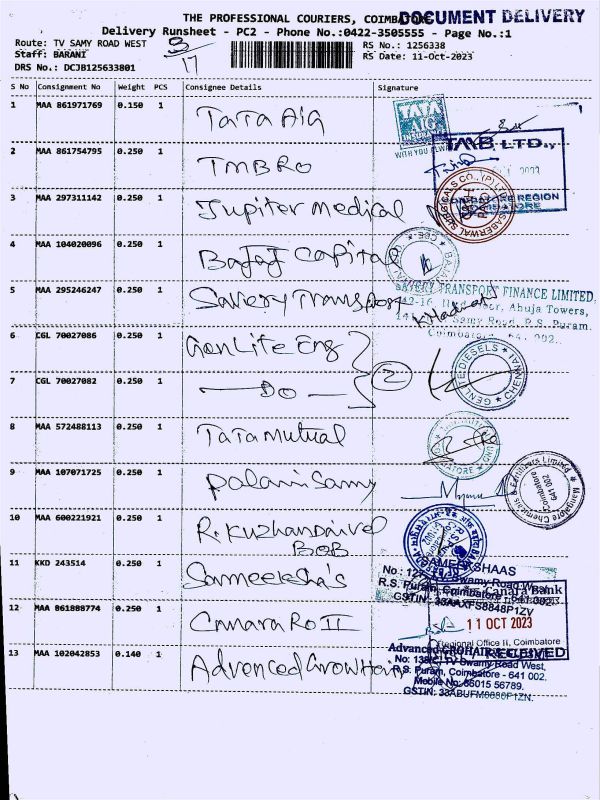 THE PROFESSIONAL COURIERS, COIMBATORE
DOCUMENT DELIVERY
Delivery Runsheet - PC2 - Phone No.:0422-3505555 - Page No.:1
Route: TV SAMY ROAD WEST
RS No.: 1256338
Staff: BARANI
RS Date: 11-Oct-2023
DRS No.: DCJB125633801
8/17
S No Consignment No Weight PCS Consignee Details Signature
1 MAA 861971769 0.150 1 Tata Aig
TATA AIG INSURANCE
WITH YOU ALWAYS
2 MAA 861754795 0.250 1 TMBRO
TMB LTD.,
2023
COIMBATORE REGION
COIMBATORE
3 MAA 297311142 0.250 1 Jupiter medical
SABERWAL SURGICALS CO., (P) LTD
4 MAA 104020096 0.250 1 Bajaj Capital
5 MAA 295246247 0.250 1 Savery Transport
SAVERY TRANSPORT FINANCE LIMITED,
Ahuja Towers,
Samy Road, R.S. Puram,
Coimbatore - 641 002.
6 CGL 70027086 0.250 1 Gen Lite Eng
7 CGL 70027082 0.250 1 — Do — 2
GENLITE DIESELS CHENNAI
8 MAA 572488113 0.250 1 Tata mutual
9 MAA 107071725 0.250 1 palanisamy
Mangalore Chemicals & Fertilizers Limited
Coimbatore
641 002
10 MAA 600221921 0.250 1 R. Kuzhandaivel
BOB
11 KKD 243514 0.250 1 Sameeksha's
SAMEEKSHAAS
Swamy Road West,
R.S. Puram, Coimbatore - 641 002.
GSTIN: 33AAXFS8848P1ZV
12 MAA 861888774 0.250 1 Canara Ro II
Canara Bank
11 OCT 2023
Regional Office II, Coimbatore
RECEIVED
13 MAA 102042853 0.140 1 Advanced Grow Hair
Advanced GROHAIR
TV Swamy Road West,
R.S. Puram, Coimbatore - 641 002.
Mobile No: 86015 56789.